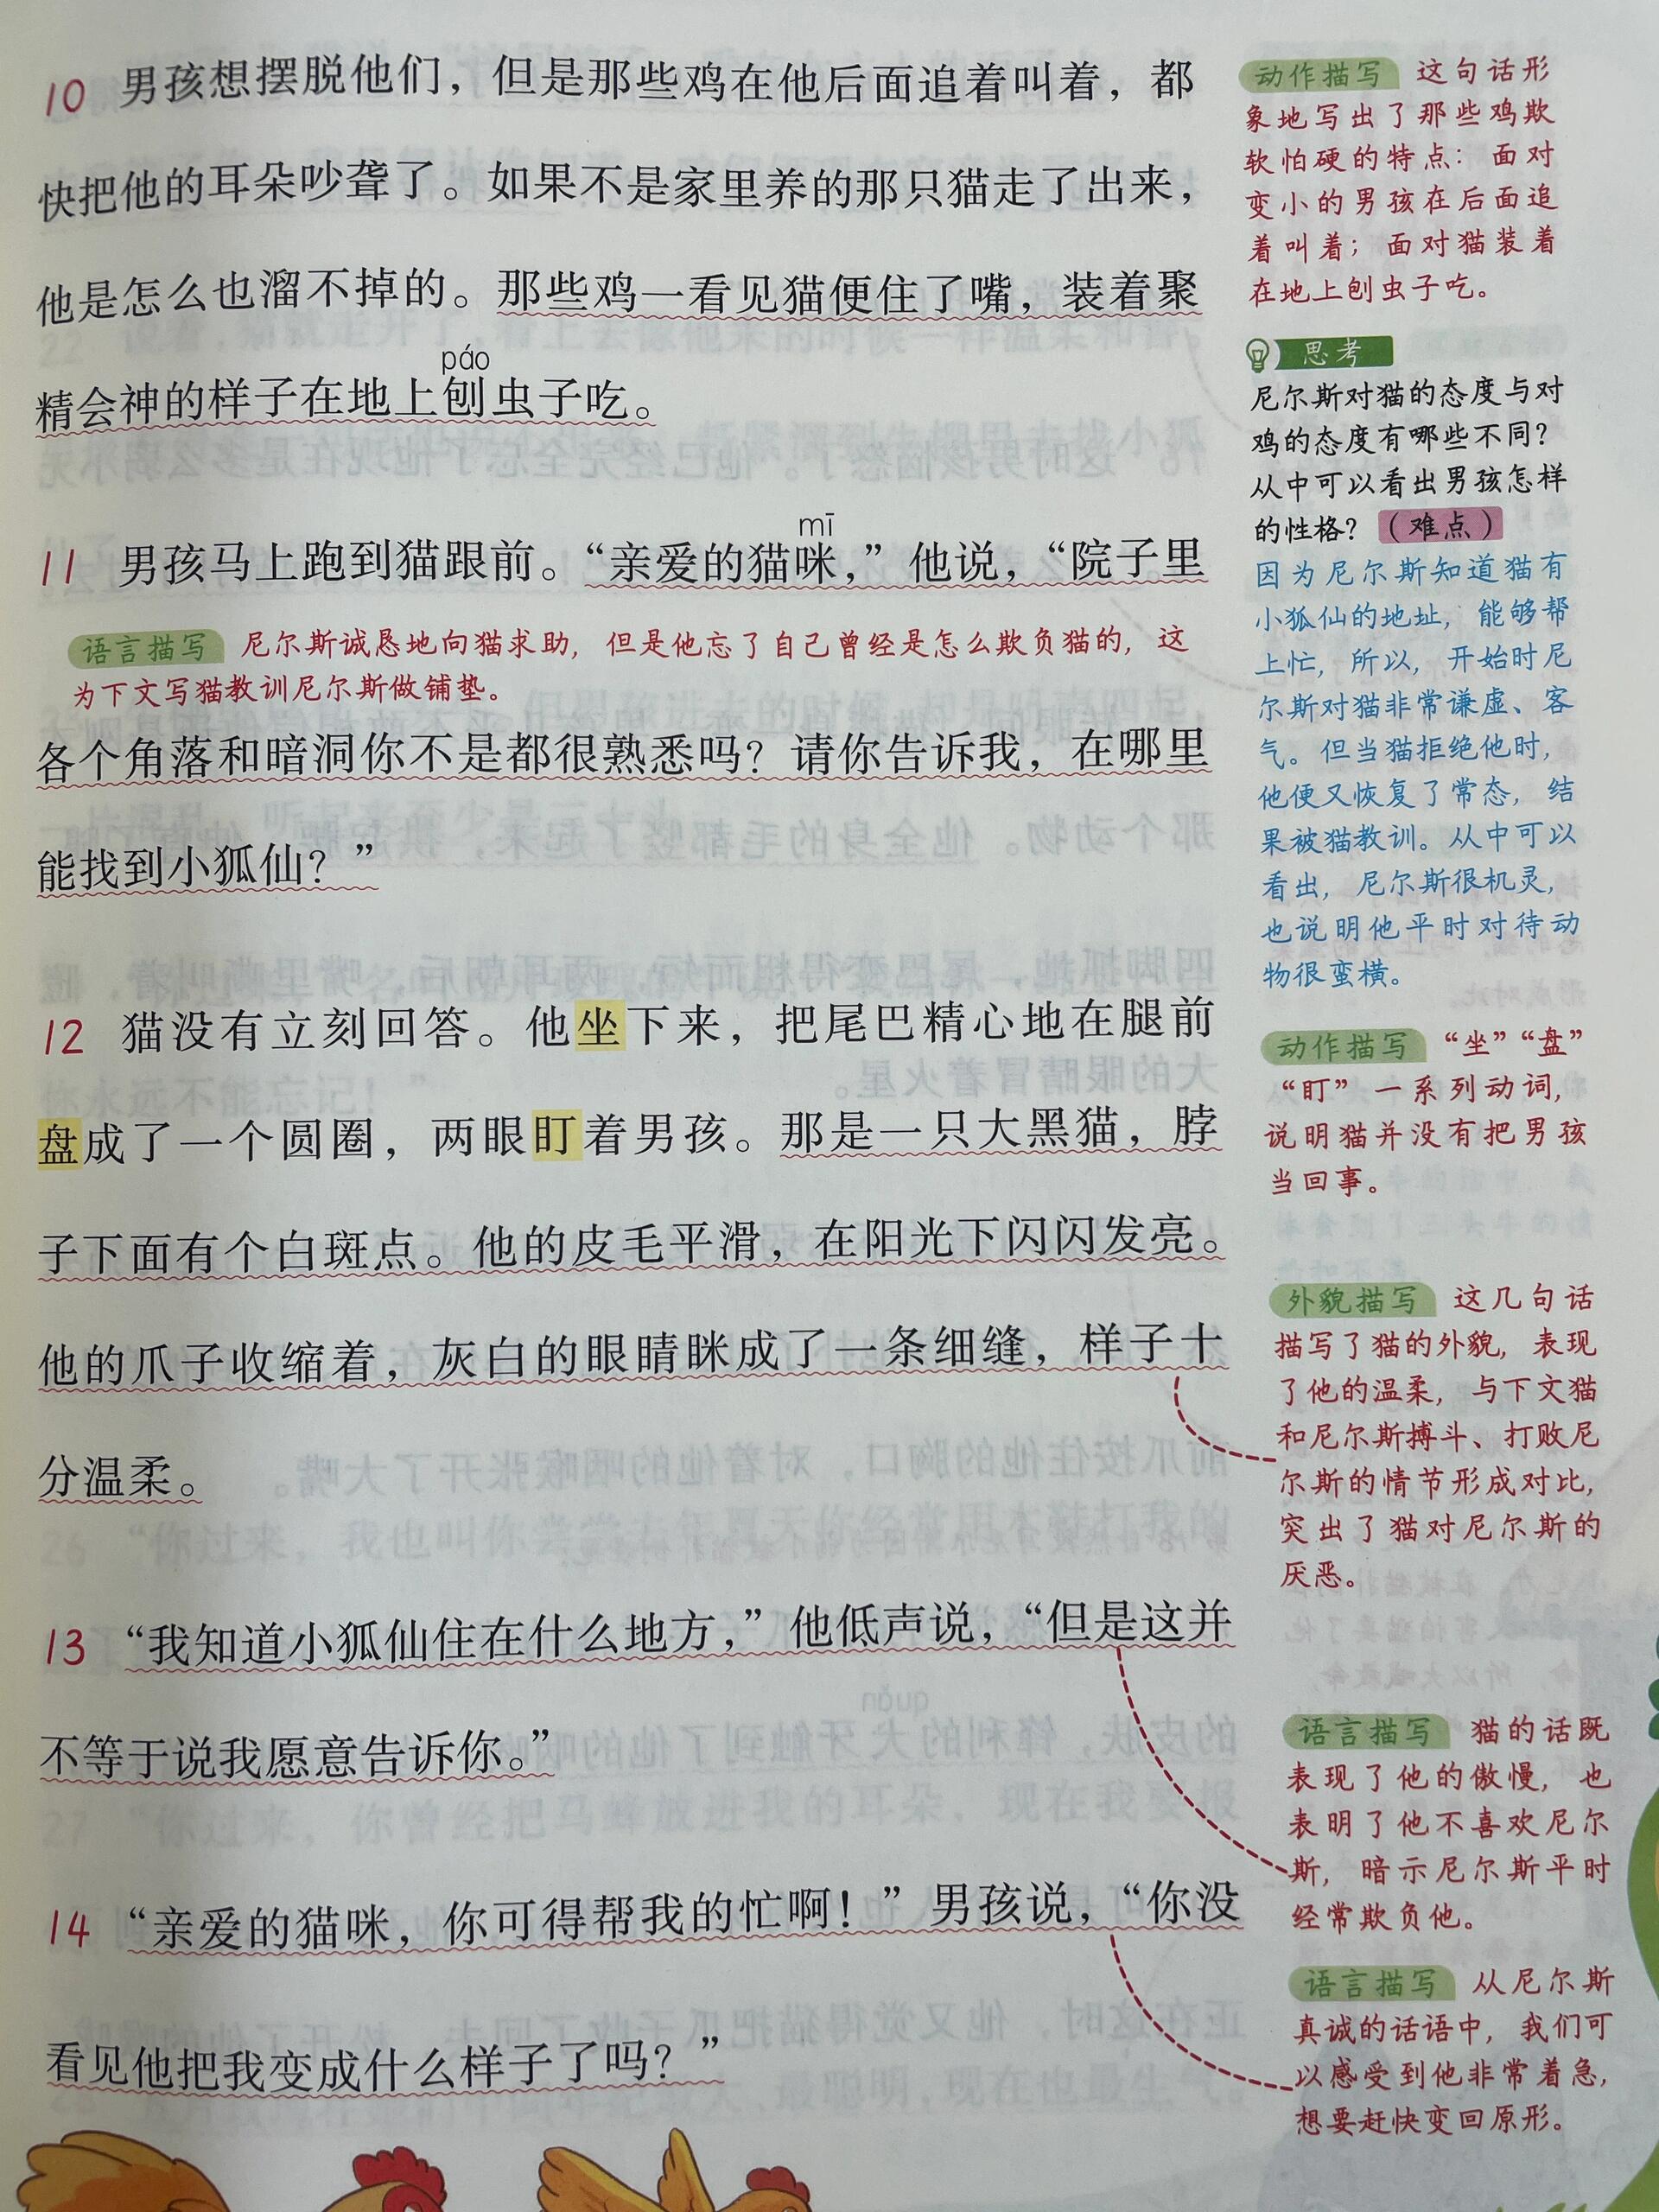 10 男孩想摆脱他们，但是那些鸡在他后面追着叫着，都
快把他的耳朵吵聋了。如果不是家里养的那只猫走了出来，
他是怎么也溜不掉的。那些鸡一看见猫便住了嘴，装着聚
páo
精会神的样子在地上刨虫子吃。
mī
11 男孩马上跑到猫跟前。“亲爱的猫咪，”他说，“院子里
语言描写 尼尔斯诚恳地向猫求助，但是他忘了自己曾经是怎么欺负猫的，这
为下文写猫教训尼尔斯做铺垫。
各个角落和暗洞你不是都很熟悉吗？请你告诉我，在哪里
能找到小狐仙？”
12 猫没有立刻回答。他坐下来，把尾巴精心地在腿前
盘成了一个圆圈，两眼盯着男孩。那是一只大黑猫，脖
子下面有个白斑点。他的皮毛平滑，在阳光下闪闪发亮。
他的爪子收缩着，灰白的眼睛眯成了一条细缝，样子十
分温柔。
13 “我知道小狐仙住在什么地方，”他低声说，“但是这并
不等于说我愿意告诉你。”
14 “亲爱的猫咪，你可得帮我的忙啊！”男孩说，“你没
看见他把我变成什么样子了吗？”
动作描写 这句话形
象地写出了那些鸡欺
软怕硬的特点：面对
变小的男孩在后面追
着叫着；面对猫装着
在地上刨虫子吃。
思考
尼尔斯对猫的态度与对
鸡的态度有哪些不同？
从中可以看出男孩怎样
的性格？（难点）
因为尼尔斯知道猫有
小狐仙的地址，能够帮
上忙，所以，开始时尼
尔斯对猫非常谦虚、客
气。但当猫拒绝他时，
他便又恢复了常态，结
果被猫教训。从中可以
看出，尼尔斯很机灵，
也说明他平时对待动
物很蛮横。
动作描写 “坐”“盘”
“盯”一系列动词，
说明猫并没有把男孩
当回事。
外貌描写 这几句话
描写了猫的外貌，表现
了他的温柔，与下文猫
和尼尔斯搏斗、打败尼
尔斯的情节形成对比，
突出了猫对尼尔斯的
厌恶。
语言描写 猫的话既
表现了他的傲慢，也
表明了他不喜欢尼尔
斯，暗示尼尔斯平时
经常欺负他。
语言描写 从尼尔斯
真诚的话语中，我们可
以感受到他非常着急，
想要赶快变回原形。